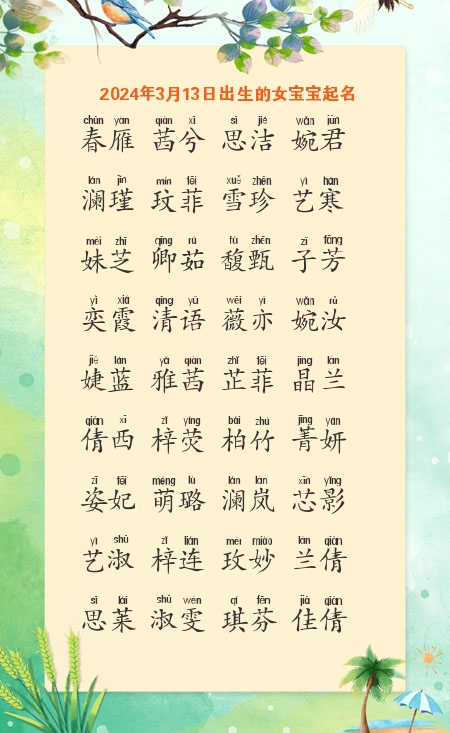 2024年3月13日出生的女宝宝起名
chūn yàn qiàn xī sī jié wǎn jūn
春雁 茜兮 思洁 婉君
lán jǐn mín fēi xuě zhēn yì hán
澜瑾 玟菲 雪珍 艺寒
mèi zhī qīng rú fù zhēn zǐ fāng
妹芝 卿茹 馥甄 子芳
yì xiá qīng yǔ wēi yì wǎn rǔ
奕霞 清语 薇亦 婉汝
jié lán yǎ qiàn zhǐ fēi jīng lán
婕蓝 雅茜 芷菲 晶兰
qiàn xī zǐ yíng bǎi zhú jīng yán
倩西 梓荧 柏竹 菁妍
zī fēi méng lù lán lán xīn yǐng
姿妃 萌璐 澜岚 芯影
yì shū zǐ lián méi miào lán qiàn
艺淑 梓连 玫妙 兰倩
sī lái shū wén qí fēn jiā qiàn
思莱 淑雯 琪芬 佳倩